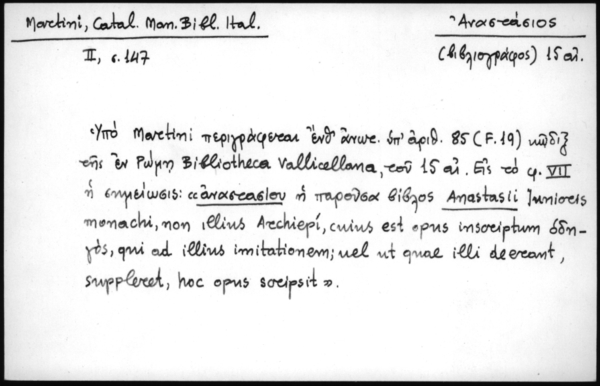 Martini, Catal. Man. Bibl. Ital.
Ἀναστάσιος
II, σ. 147
(βιβλιογράφος) 15 αἰ.
Ὑπὸ Martini περιγράφεται ἔνθ' ἄνωτ. ὑπ' ἀριθ. 85 (F. 19) κῶδιξ
τῆς ἐν Ρώμῃ Bibliotheca Vallicellana, τοῦ 15 αἰ. Εἰς τὸ φ. VII
ἡ σημείωσις: «ἀναστασίου ἡ παροῦσα βίβλος Anastasii Junioris
monachi, non illius Archiepí, cuius est opus inscriptum ὁδη-
γὸς, qui ad illius imitationem; vel ut quae illi deerant,
suppleret, hoc opus scripsit».